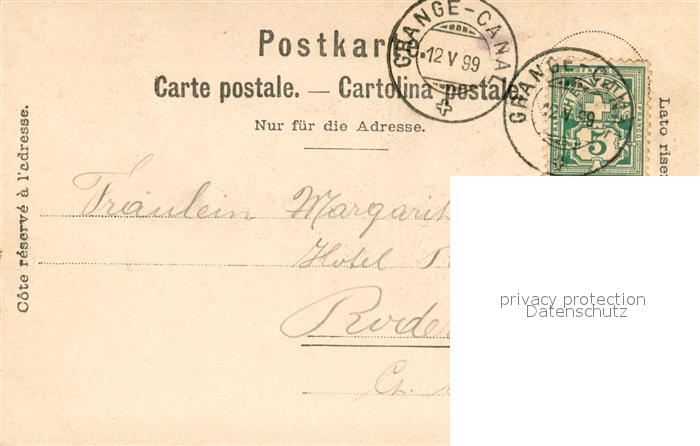 Postkarte
Carte postale. — Cartolina postale.
Nur für die Adresse.
GRANGE-CANAL
12 V 99
GRANGE-CANAL
V 99
HELVETIA
5
Côte réservé à l'adresse.
Lato riser
Fräulein Margarit
Hotel
Roder
Ct.
privacy protection
Datenschutz